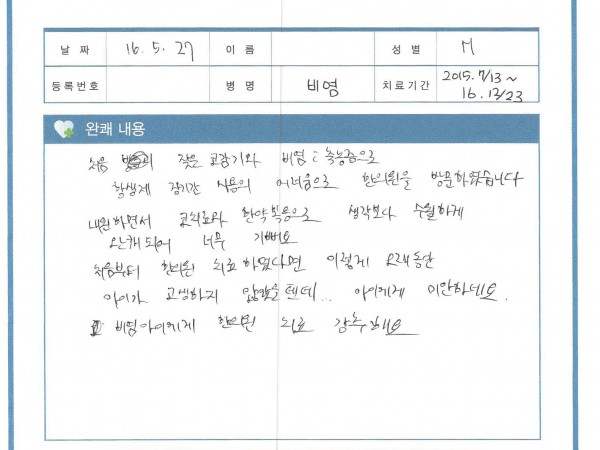 날 짜 16. 5. 27 이 름 성 별 M
등록번호 병 명 비염 치료기간 2015. 7/13 ~
16. 12/23
완쾌 내용
처음 잦은 코감기와 비염, 축농증으로
항생제 장기간 사용의 어려움으로 한의원을 방문하였습니다
내원하면서 코치료와 한약복용으로 생각보다 수월하게
완쾌되어 너무 기뻐요
처음부터 한의원 치료하였다면 이렇게 오래동안
아이가 고생하지 않았을텐데... 아이에게 미안하네요.
비염아이에게 한의원 치료 강추해요